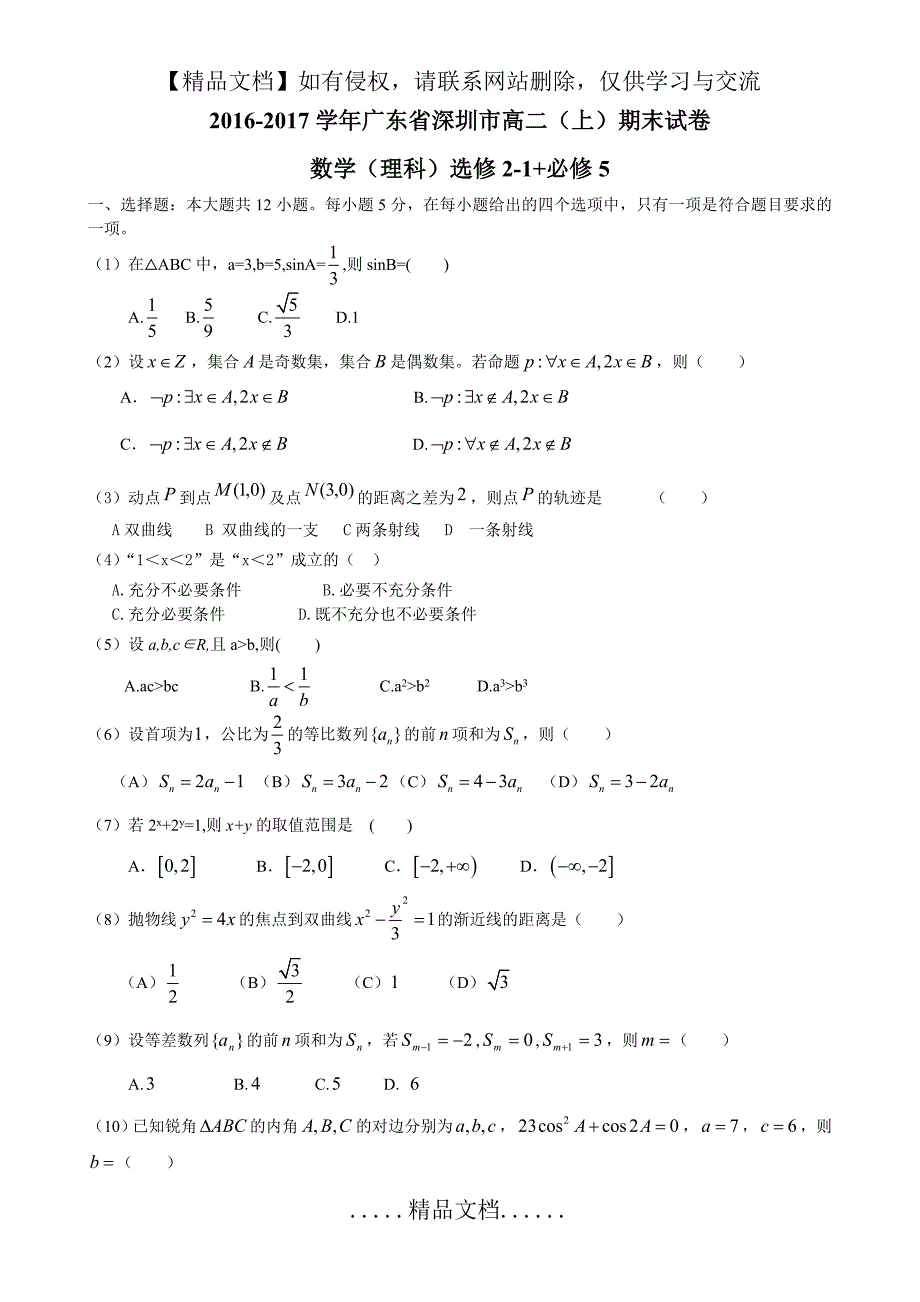 【精品文档】如有侵权，请联系网站删除，仅供学习与交流
2016-2017 学年广东省深圳市高二（上）期末试卷
数学（理科）选修 2-1+必修 5
一、选择题：本大题共 12 小题。每小题 5 分，在每小题给出的四个选项中，只有一项是符合题目要求的
一项。
（1）在△ABC 中，a=3,b=5,sinA=1/3,则 sinB=(　　)
A.1/5　B.5/9　C.√5/3　D.1
（2）设 x∈Z，集合 A 是奇数集，集合 B 是偶数集。若命题 p:∀x∈A,2x∈B，则（　　）
A．¬p:∃x∈A,2x∈B　B.¬p:∃x∉A,2x∈B
C．¬p:∃x∈A,2x∉B　D.¬p:∀x∉A,2x∉B
（3）动点 P 到点 M(1,0) 及点 N(3,0) 的距离之差为 2，则点 P 的轨迹是　（　　）
A 双曲线　B 双曲线的一支　C 两条射线　D 一条射线
（4）“1＜x＜2”是“x＜2”成立的（　）
A.充分不必要条件　B.必要不充分条件
C.充分必要条件　D.既不充分也不必要条件
（5）设 a,b,c∈R,且 a>b,则(　　)
A.ac>bc　B.1/a<1/b　C.a²>b²　D.a³>b³
（6）设首项为1，公比为2/3的等比数列{aₙ}的前 n 项和为 Sₙ，则（　　）
（A）Sₙ=2aₙ−1（B）Sₙ=3aₙ−2（C）Sₙ=4−3aₙ（D）Sₙ=3−2aₙ
（7）若 2ˣ+2ʸ=1,则 x+y 的取值范围是　(　　)
A．[0,2]　B．[−2,0]　C．[−2,+∞)　D．(−∞,−2]
（8）抛物线 y²=4x 的焦点到双曲线 x²−y²/3=1 的渐近线的距离是（　　）
（A）1/2　（B）√3/2　（C）1　（D）√3
（9）设等差数列{aₙ}的前 n 项和为 Sₙ，若 Sₘ₋₁=−2,Sₘ=0,Sₘ₊₁=3，则 m=（　　）
A.3　B.4　C.5　D. 6
（10）已知锐角 ΔABC 的内角 A,B,C 的对边分别为 a,b,c，23cos²A+cos2A=0，a=7，c=6，则
b=（　　）
.....精品文档......